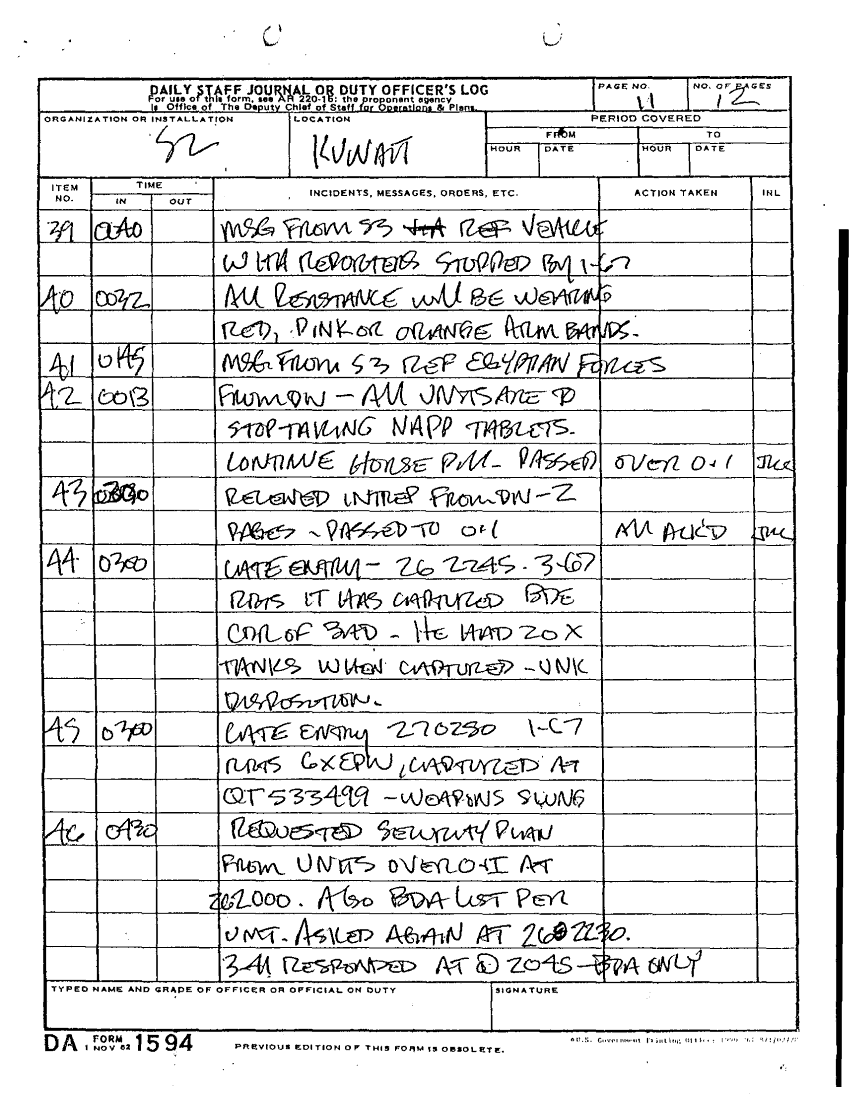 DAILY STAFF JOURNAL OR DUTY OFFICER'S LOG
For use of this form, see AR 220-15; the proponent agency
is Office of The Deputy Chief of Staff for Operations & Plans.
PAGE NO. 11
NO. OF PAGES 12
ORGANIZATION OR INSTALLATION
S2
LOCATION
KUWAIT
PERIOD COVERED
FROM TO
HOUR DATE HOUR DATE
ITEM NO. TIME IN OUT INCIDENTS, MESSAGES, ORDERS, ETC. ACTION TAKEN INL
39 MSG FROM S3 REF VEHICLE
WITH REPORTERS STOPPED BY 1-67
40 0032 ALL RESISTANCE WILL BE WEARING
RED, PINK OR ORANGE ARM BANDS.
41 0145 MSG FROM S3 REF EGYPTIAN FORCES
42 0013 FROM DIV - ALL UNITS ARE TO
STOP TAKING NAPP TABLETS.
CONTINUE HORSE PILL - PASSED OVER O+I
43 RECEIVED INTREP FROM DIV - 2
PAGES - PASSED TO O+I ALL ACK'D
44 0300 LATE ENTRY - 26 2245. 3-67
RPTS IT HAS CAPTURED BDE
CDR OF 3AD - HE HAD 20 X
TANKS WHEN CAPTURED - UNK
DISPOSITION.
45 0300 LATE ENTRY 270230 1-67
RPTS 6XEPW, CAPTURED AT
QT533499 - WEAPONS SLUNG
46 0430 REQUESTED SECURITY PLAN
FROM UNITS OVER O+I AT
262000. ALSO BDA LIST PER
UNIT. ASKED AGAIN AT 262230.
3-41 RESPONDED AT @ 2045 - BDA ONLY
TYPED NAME AND GRADE OF OFFICER OR OFFICIAL ON DUTY
SIGNATURE
DA FORM 1 NOV 62 1594
PREVIOUS EDITION OF THIS FORM IS OBSOLETE.
U.S. Government Printing Office: